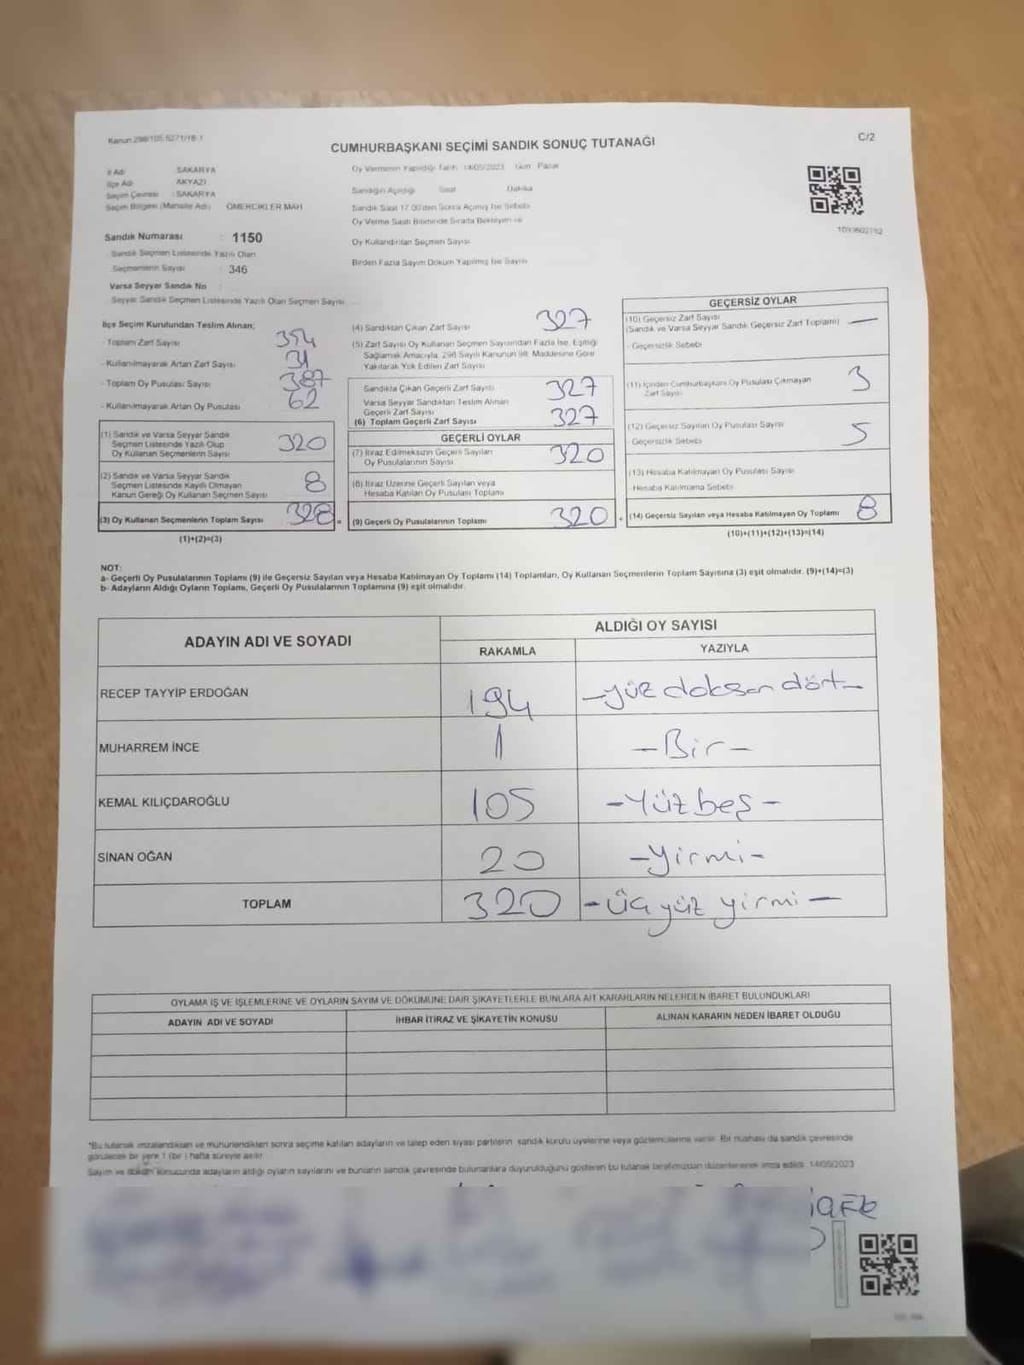 Kanun 298/105 6271/18-1
C/2
CUMHURBAŞKANI SEÇİMİ SANDIK SONUÇ TUTANAĞI
İl Adı SAKARYA
İlçe Adı AKYAZI
Seçim Çevresi : SAKARYA
Seçim Bölgesi (Mahalle Adı) ÖMERCİKLER MAH
Sandık Numarası : 1150
Sandık Seçmen Listesinde Yazılı Olan
Seçmenlerin Sayısı : 346
Varsa Seyyar Sandık No
Seyyar Sandık Seçmen Listesinde Yazılı Olan Seçmen Sayısı
Oy Vermenin Yapıldığı Tarih 14/05/2023 Gün Pazar
Sandığın Açıldığı Saat Dakika
Sandık Saat 17.00'den Sonra Açılmış İse Sebebi
Oy Verme Saati Bitiminde Sırada Bekleyen ve
Oy Kullandırılan Seçmen Sayısı
Birden Fazla Sayım Döküm Yapılmış İse Sayısı
İlçe Seçim Kurulundan Teslim Alınan;
- Toplam Zarf Sayısı 354
- Kullanılmayarak Artan Zarf Sayısı 31
- Toplam Oy Pusulası Sayısı 387
- Kullanılmayarak Artan Oy Pusulası 62
(1) Sandık ve Varsa Seyyar Sandık
Seçmen Listesinde Yazılı Olup
Oy Kullanan Seçmenlerin Sayısı 320
(2) Sandık ve Varsa Seyyar Sandık
Seçmen Listesinde Kayıtlı Olmayan
Kanun Gereği Oy Kullanan Seçmen Sayısı 8
(3) Oy Kullanan Seçmenlerin Toplam Sayısı 328 =
(1)+(2)=(3)
(4) Sandıktan Çıkan Zarf Sayısı 327
(5) Zarf Sayısı Oy Kullanan Seçmen Sayısından Fazla İse, Eşitliği
Sağlamak Amacıyla, 298 Sayılı Kanunun 98. Maddesine Göre
Yakılarak Yok Edilen Zarf Sayısı
Sandıkta Çıkan Geçerli Zarf Sayısı 327
Varsa Seyyar Sandıktan Teslim Alınan
Geçerli Zarf Sayısı
(6) Toplam Geçerli Zarf Sayısı 327
GEÇERLİ OYLAR
(7) İtiraz Edilmeksizin Geçerli Sayılan
Oy Pusulalarının Sayısı 320
(8) İtiraz Üzerine Geçerli Sayılan veya
Hesaba Katılan Oy Pusulası Toplamı
(9) Geçerli Oy Pusulalarının Toplamı 320 +
GEÇERSİZ OYLAR
(10) Geçersiz Zarf Sayısı —
(Sandık ve Varsa Seyyar Sandık Geçersiz Zarf Toplamı)
- Geçersizlik Sebebi
(11) İçinden Cumhurbaşkanı Oy Pusulası Çıkmayan
Zarf Sayısı 3
(12) Geçersiz Sayılan Oy Pusulası Sayısı 5
- Geçersizlik Sebebi
(13) Hesaba Katılmayan Oy Pusulası Sayısı
- Hesaba Katılmama Sebebi
(14) Geçersiz Sayılan veya Hesaba Katılmayan Oy Toplamı 8
(10)+(11)+(12)+(13)=(14)
NOT:
a- Geçerli Oy Pusulalarının Toplamı (9) ile Geçersiz Sayılan veya Hesaba Katılmayan Oy Toplamı (14) Toplamları, Oy Kullanan Seçmenlerin Toplam Sayısına (3) eşit olmalıdır. (9)+(14)=(3)
b- Adayların Aldığı Oyların Toplamı, Geçerli Oy Pusulalarının Toplamına (9) eşit olmalıdır.
ADAYIN ADI VE SOYADI
ALDIĞI OY SAYISI
RAKAMLA YAZIYLA
RECEP TAYYİP ERDOĞAN 194 -yüz doksan dört-
MUHARREM İNCE 1 -Bir-
KEMAL KILIÇDAROĞLU 105 -Yüz beş-
SİNAN OĞAN 20 -yirmi-
TOPLAM 320 -üç yüz yirmi-
OYLAMA İŞ VE İŞLEMLERİNE VE OYLARIN SAYIM VE DÖKÜMÜNE DAİR ŞİKAYETLERLE BUNLARA AİT KARARLARIN NELERDEN İBARET BULUNDUKLARI
ADAYIN ADI VE SOYADI İHBAR İTİRAZ VE ŞİKAYETİN KONUSU ALINAN KARARIN NEDEN İBARET OLDUĞU
*Bu tutanak imzalandıktan ve mühürlendikten sonra seçime katılan adayların ve talep eden siyasi partilerin sandık kurulu üyelerine veya gözlemcilerine verilir. Bir nüshası da sandık çevresinde
görülecek bir yere 1 (bir) hafta süreyle asılır.
Sayım ve döküm sonucunda adayların aldığı oyların sayılarını ve bunların sandık çevresinde bulunanlara duyurulduğunu gösteren bu tutanak tarafımızdan düzenlenerek imza edildi. 14/05/2023